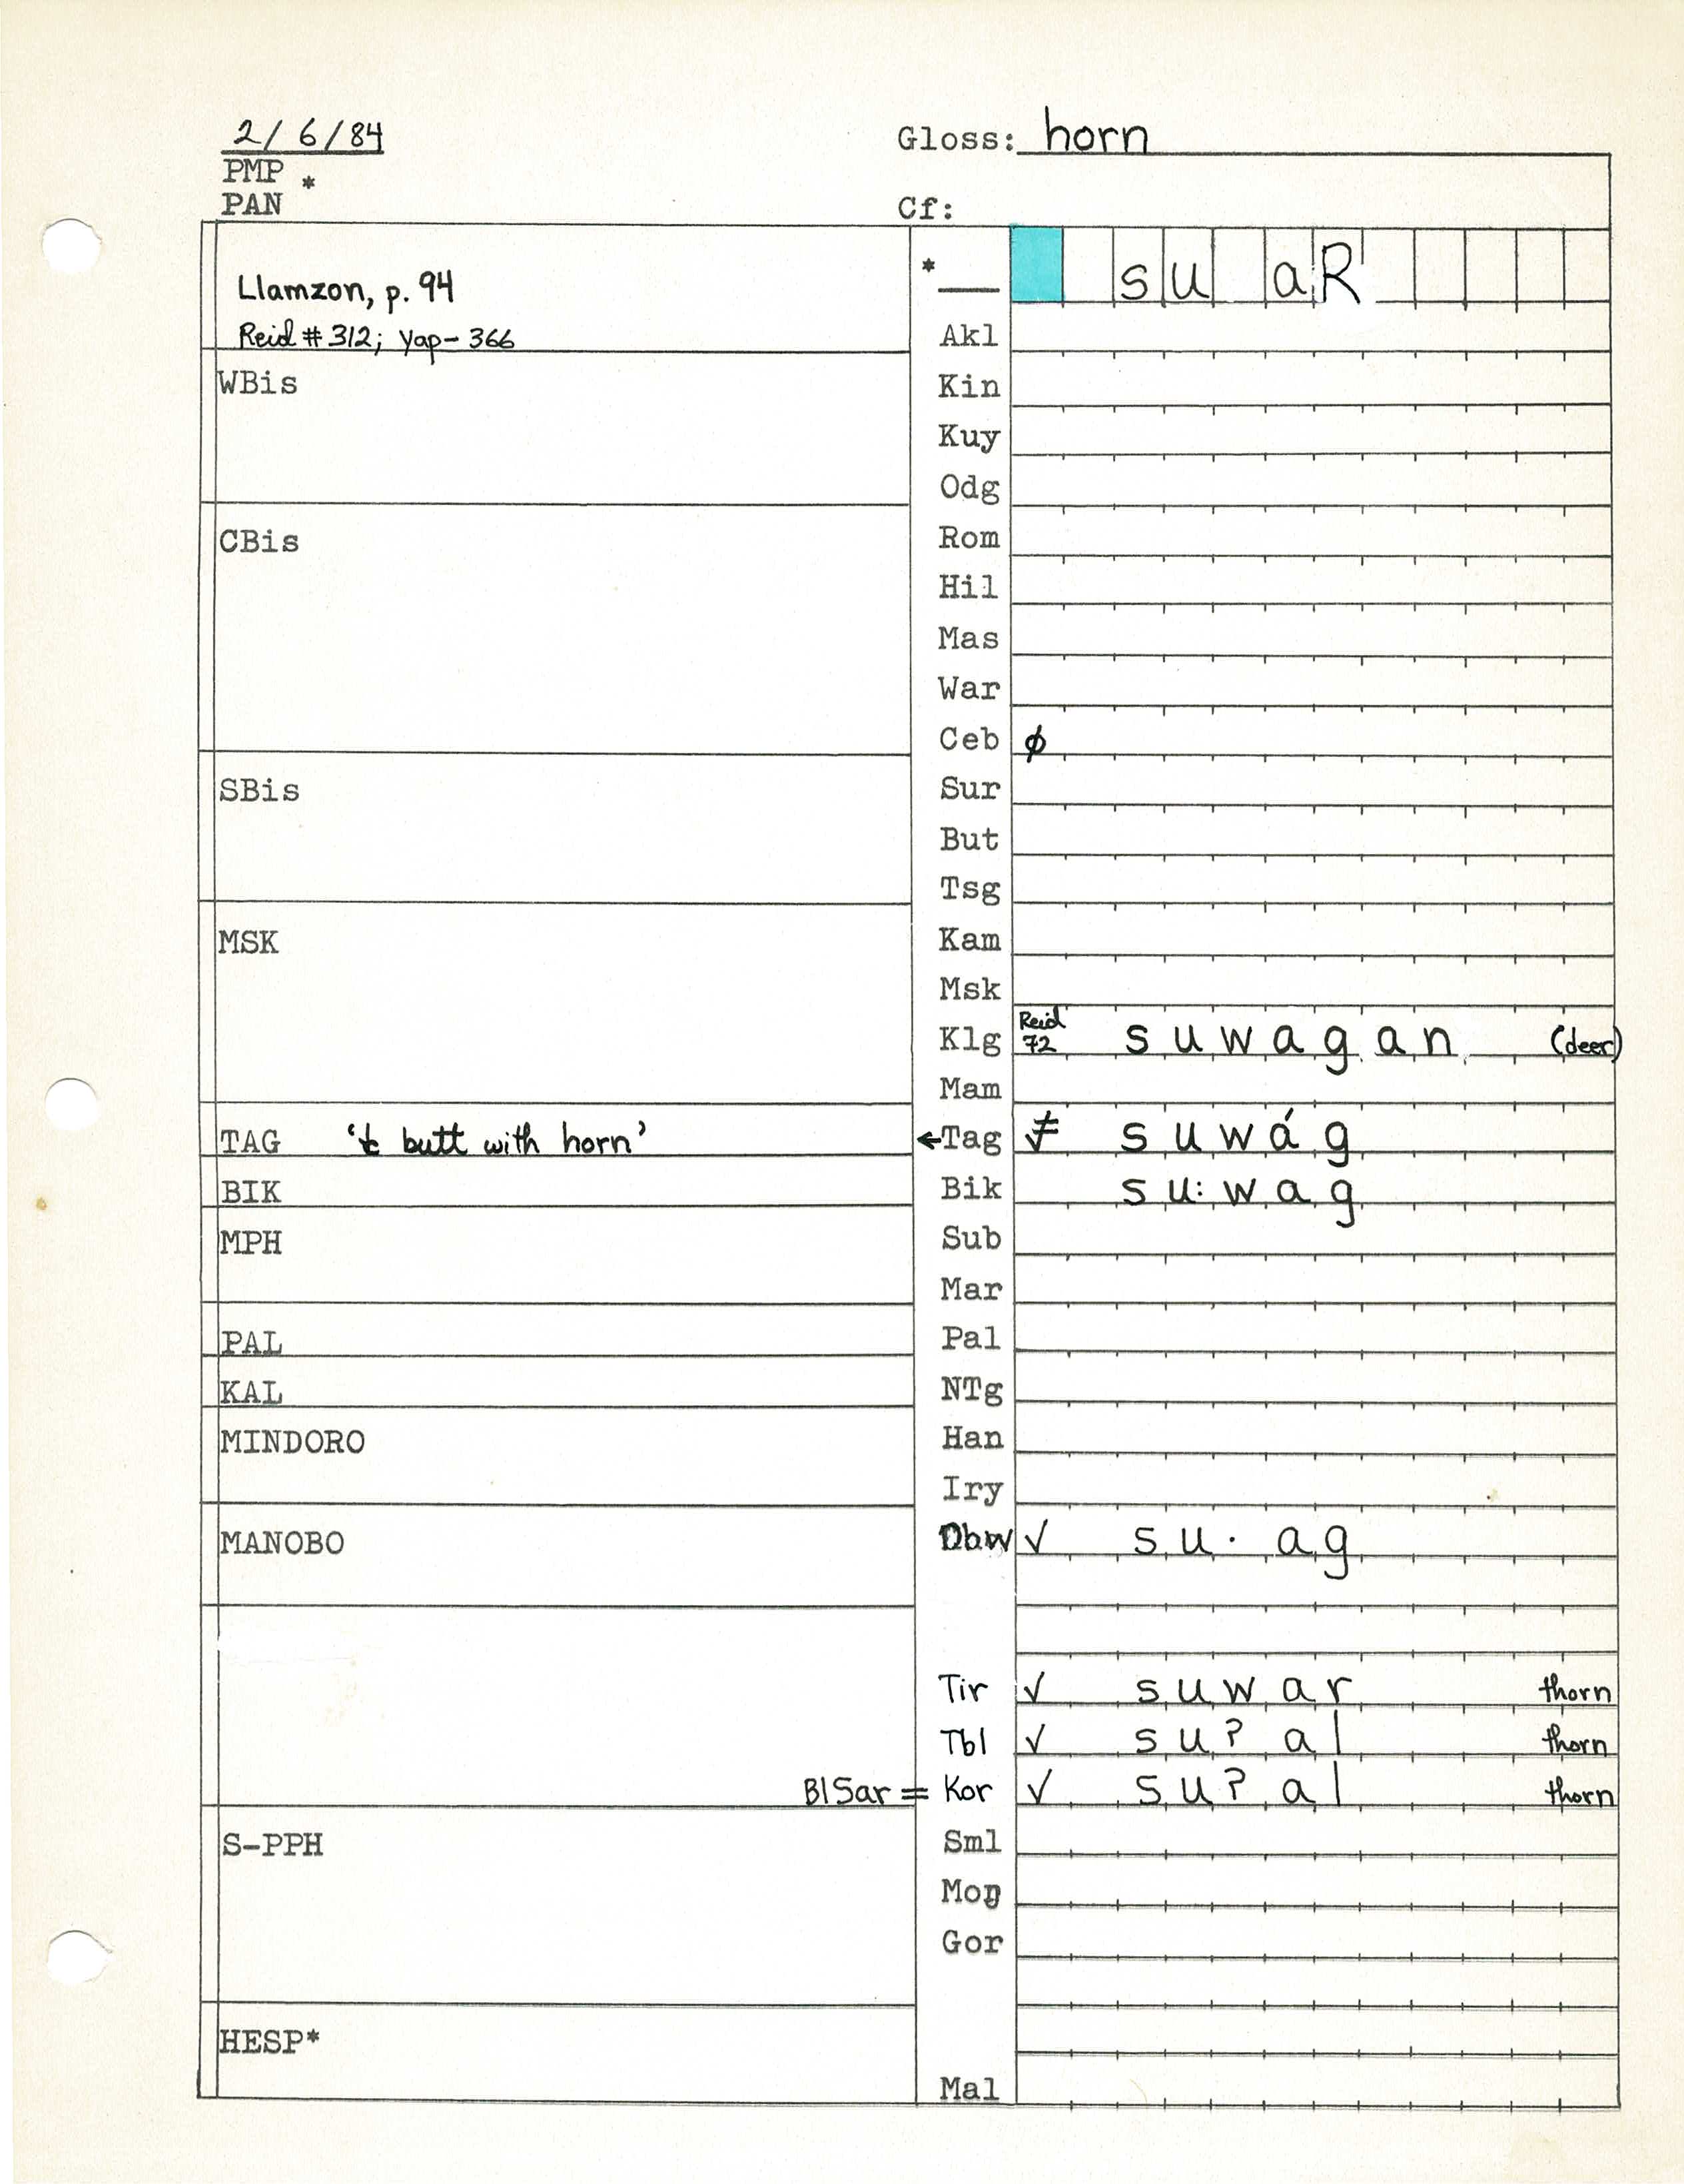 2/ 6/84
Gloss: horn
PMP *
PAN
Cf:
Llamzon, p. 94
Reid # 312; Yap- 366
* su aR
Akl
WBis
Kin
Kuy
Odg
CBis
Rom
Hil
Mas
War
Ceb ø
SBis
Sur
But
Tsg
MSK
Kam
Msk
Klg Reid 72 suwagan (deer)
Mam
TAG 'to butt with horn' ←Tag ≠ suwág
BIK Bik su:wag
MPH Sub
Mar
PAL Pal
KAL NTg
MINDORO Han
Iry
MANOBO Dbw ✓ su· ag
Tir ✓ suwar thorn
Tbl ✓ suʔ al thorn
BlSar = Kor ✓ suʔ al thorn
S-PPH Sml
Moŋ
Gor
HESP*
Mal